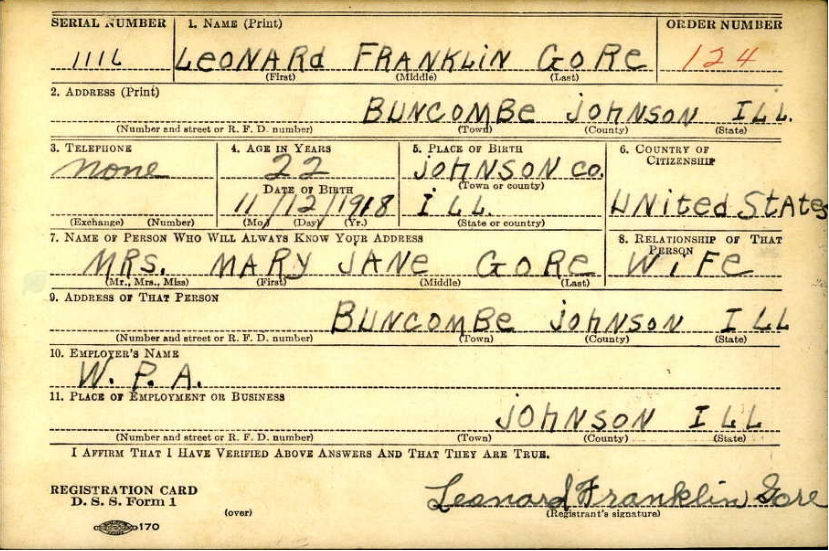 SERIAL NUMBER 1. NAME (Print) ORDER NUMBER
1116 LEONARD FRANKLIN GORE 124
(First) (Middle) (Last)
2. ADDRESS (Print)
BUNCOMBE JOHNSON ILL.
(Number and street or R. F. D. number) (Town) (County) (State)
3. TELEPHONE 4. AGE IN YEARS 5. PLACE OF BIRTH 6. COUNTRY OF CITIZENSHIP
none 22 JOHNSON CO.
DATE OF BIRTH (Town or county)
11/12/1918 ILL. UNITED STATES
(Exchange) (Number) (Mo.) (Day) (Yr.) (State or country)
7. NAME OF PERSON WHO WILL ALWAYS KNOW YOUR ADDRESS 8. RELATIONSHIP OF THAT PERSON
MRS. MARY JANE GORE WIFE
(Mr., Mrs., Miss) (First) (Middle) (Last)
9. ADDRESS OF THAT PERSON
BUNCOMBE JOHNSON ILL
(Number and street or R. F. D. number) (Town) (County) (State)
10. EMPLOYER'S NAME
W. P. A.
11. PLACE OF EMPLOYMENT OR BUSINESS
JOHNSON ILL
(Number and street or R. F. D. number) (Town) (County) (State)
I AFFIRM THAT I HAVE VERIFIED ABOVE ANSWERS AND THAT THEY ARE TRUE.
REGISTRATION CARD
D. S. S. Form 1 Leonard Franklin Gore
(over) (Registrant's signature)
170